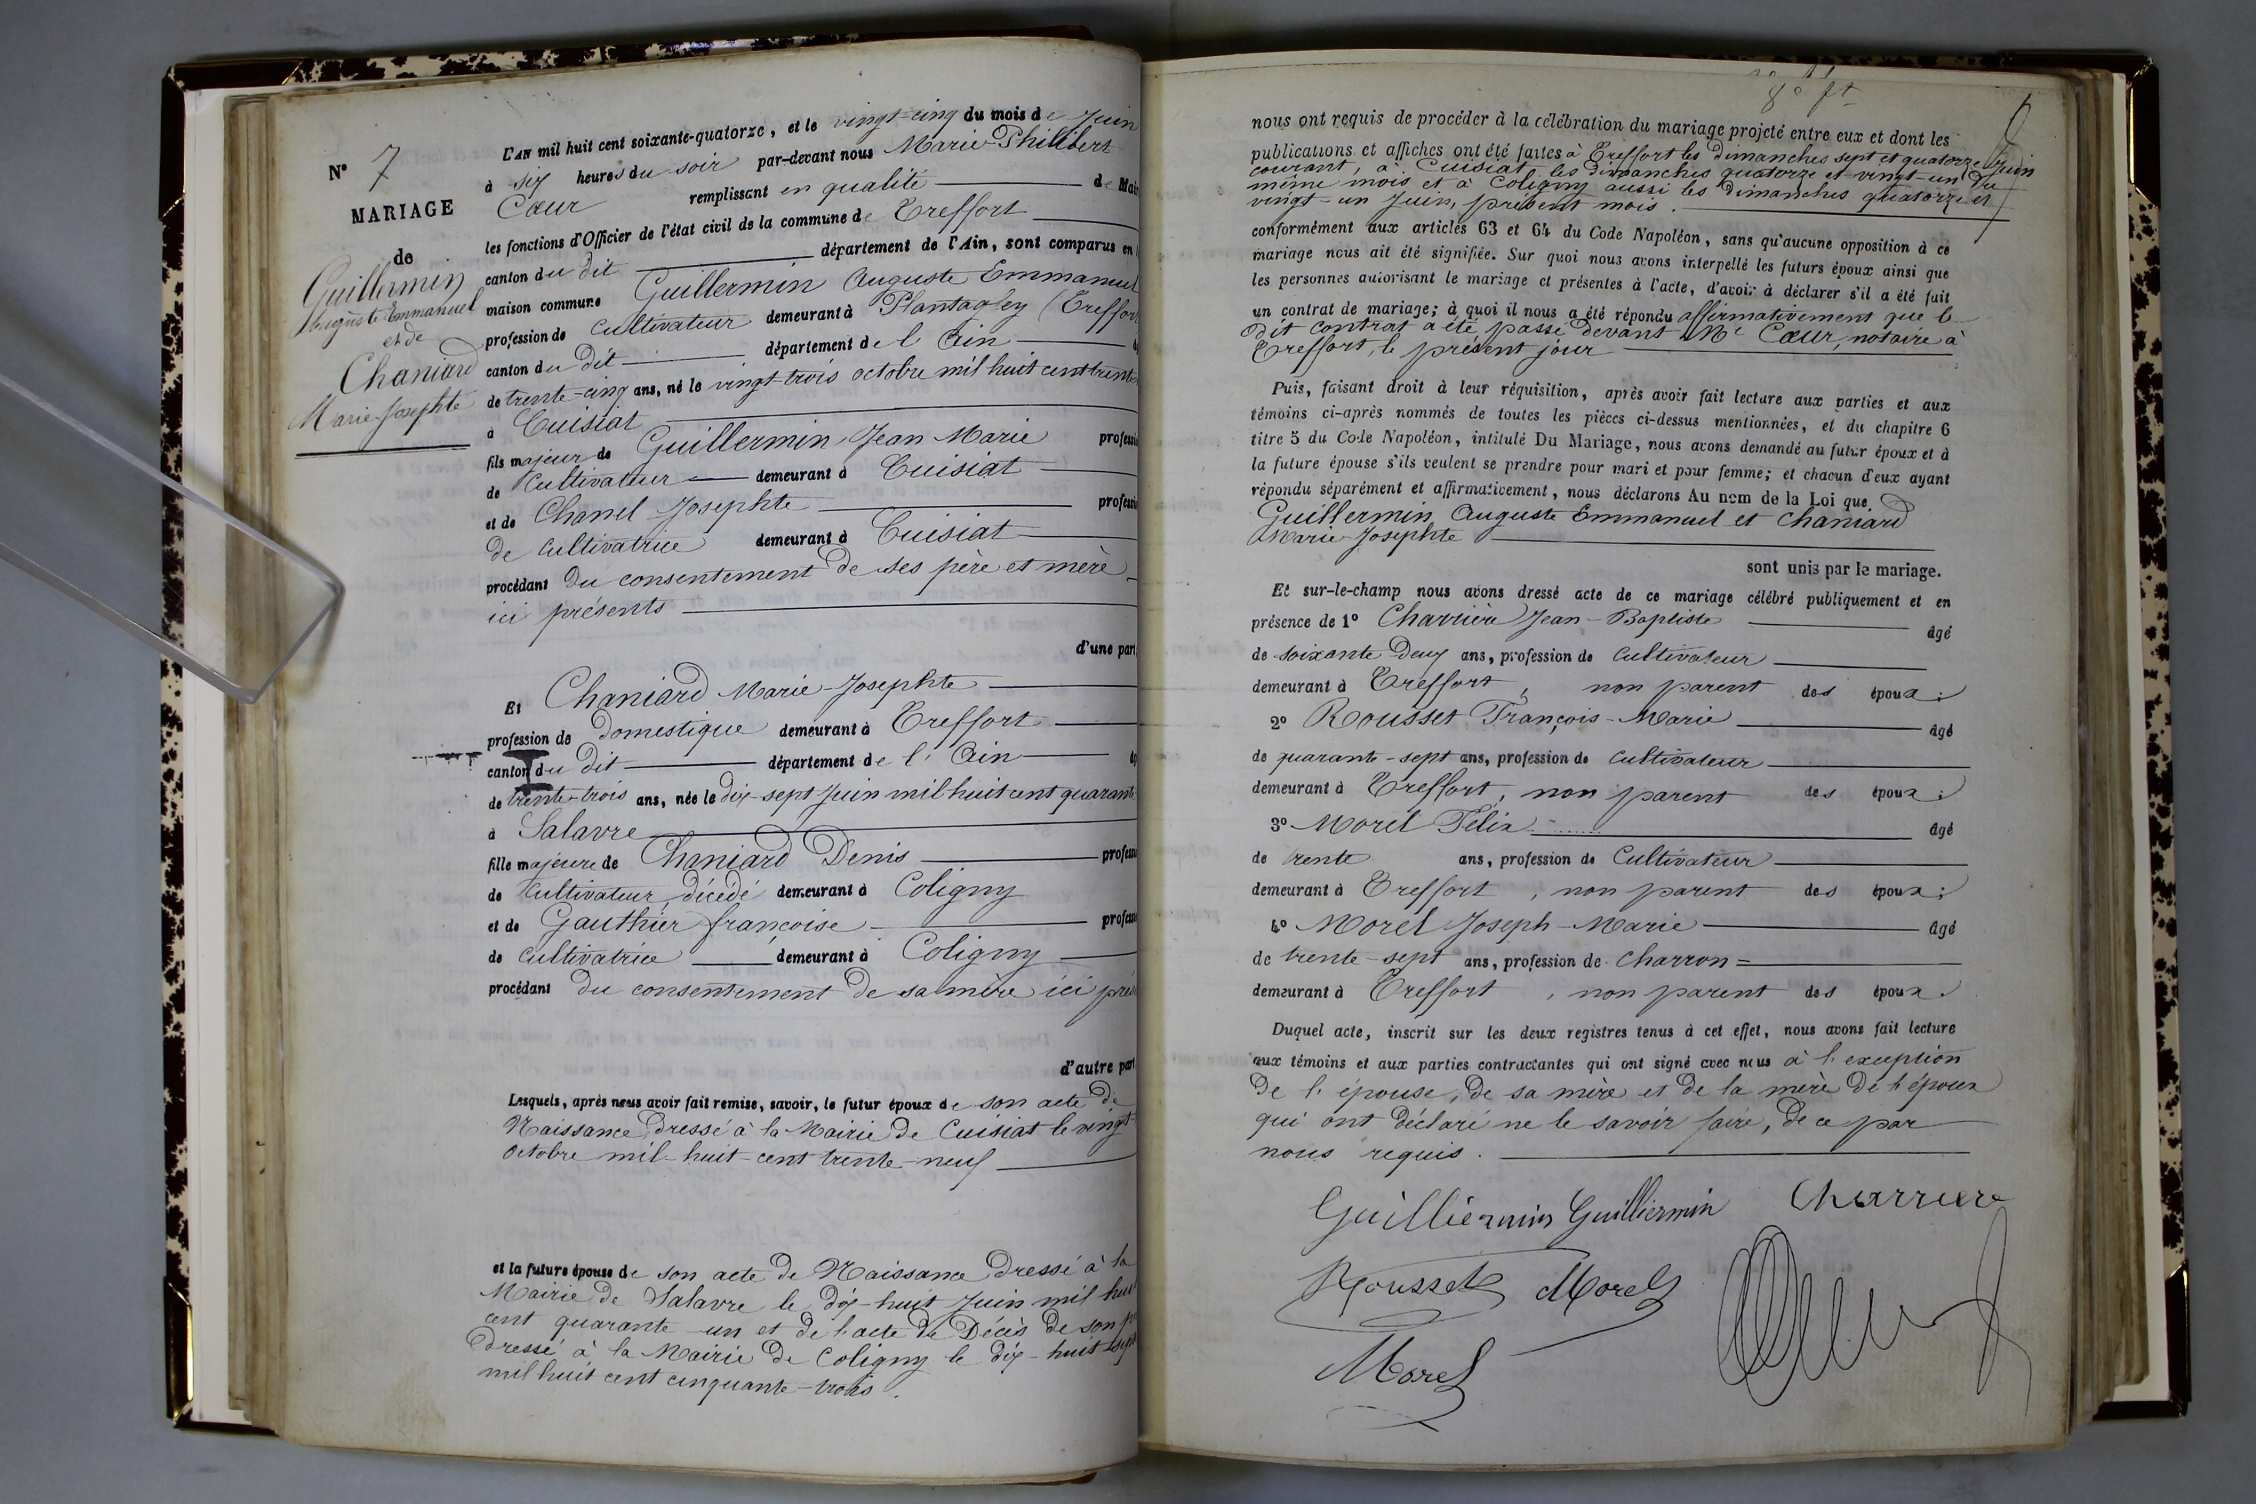 N° 7
MARIAGE
de
Guillermin
Auguste Emmanuel
et de
Chaniard
Marie-Josephte
L'AN mil huit cent soixante-quatorze, et le vingt-cinq du mois de Juin
à six heures du soir par-devant nous Marie-Philibert
Cœur remplissant en qualité de Mair
les fonctions d'Officier de l'état civil de la commune de Treffort
canton du dit département de l'Ain, sont comparus en
maison commune Guillermin Auguste Emmanuel
profession de Cultivateur demeurant à Plantagley (Treffort
canton du dit département de l'Ain
de trente-cinq ans, né le vingt-trois octobre mil huit cent trente
à Cuisiat
fils majeur de Guillermin Jean Marie professi
de Cultivateur demeurant à Cuisiat
et de Chanel Josephte professi
de cultivatrice demeurant à Cuisiat
procédant du consentement de ses père et mère
ici présents
d'une part,
Et Chaniard Marie-Josephte
profession de Domestique demeurant à Treffort
canton du dit département de l'Ain
de trente-trois ans, née le dix-sept Juin mil huit cent quarante
à Salavre
fille majeure de Chaniard Denis profess
de Cultivateur, décédé demeurant à Coligny
et de Gauthier françoise profess
de cultivatrice demeurant à Coligny
procédant du consentement de sa mère ici prés
d'autre part
Lesquels, après nous avoir fait remise, savoir, le futur époux de son acte de
Naissance dressé à la Mairie de Cuisiat le vingt
octobre mil-huit-cent trente-neuf
et la future épouse de son acte de Naissance dressé à la
Mairie de Salavre le dix-huit Juin mil huit
cent quarante-un et de l'acte de Décès de son p
dressé à la Mairie de Coligny le dix-huit sept
mil huit cent cinquante-trois.
8e ft
nous ont requis de procéder à la célébration du mariage projeté entre eux et dont les
publications et affiches ont été faites à Treffort les dimanches sept et quatorze Juin
courant, à Cuisiat, les dimanches quatorze et vingt-un du
même mois et à Coligny aussi les dimanches quatorze et
vingt-un Juin, présent mois.
conformément aux articles 63 et 64 du Code Napoléon, sans qu'aucune opposition à ce
mariage nous ait été signifiée. Sur quoi nous avons interpellé les futurs époux ainsi que
les personnes autorisant le mariage et présentes à l'acte, d'avoir à déclarer s'il a été fait
un contrat de mariage; à quoi il nous a été répondu affirmativement que le
dit contrat a été passé devant Me Cœur, notaire à
Treffort, le présent jour
Puis, faisant droit à leur réquisition, après avoir fait lecture aux parties et aux
témoins ci-après nommés de toutes les pièces ci-dessus mentionnées, et du chapitre 6
titre 5 du Code Napoléon, intitulé Du Mariage, nous avons demandé au futur époux et à
la future épouse s'ils veulent se prendre pour mari et pour femme; et chacun d'eux ayant
répondu séparément et affirmativement, nous déclarons Au nom de la Loi que
Guillermin Auguste Emmanuel et Chaniard
Marie-Josephte
sont unis par le mariage.
Et sur-le-champ nous avons dressé acte de ce mariage célébré publiquement et en
présence de 1° Charrière Jean-Baptiste âgé
de soixante deux ans, profession de Cultivateur
demeurant à Treffort, non parent des époux;
2° Rousset François-Marie âgé
de quarante-sept ans, profession de Cultivateur
demeurant à Treffort, non parent des époux;
3° Morel Félix âgé
de trente ans, profession de Cultivateur
demeurant à Treffort, non parent des époux;
4° Morel Joseph-Marie âgé
de trente-sept ans, profession de Charron =
demeurant à Treffort, non parent des époux.
Duquel acte, inscrit sur les deux registres tenus à cet effet, nous avons fait lecture
aux témoins et aux parties contractantes qui ont signé avec nous à l'exception
de l'épouse, de sa mère et de la mère de l'époux
qui ont déclaré ne le savoir faire, de ce par
nous requis.
Guilliermin Guilliermin Charriere
Rousset Morel
Morel